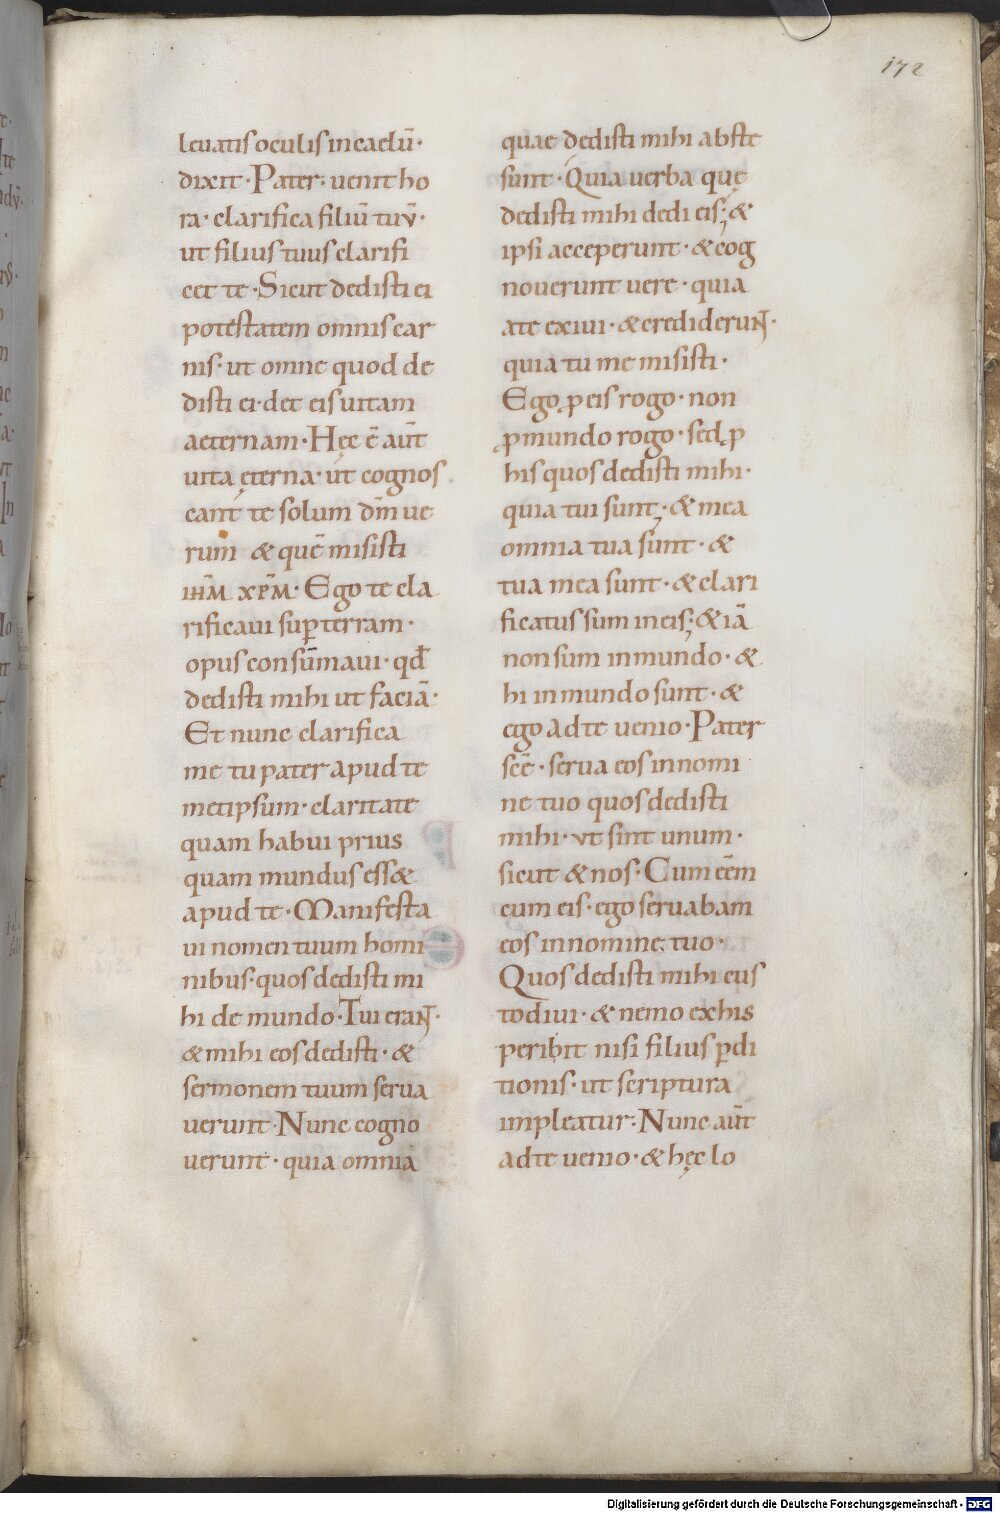 172
leuatis oculis in caelū·
dixit· Pater· uenit ho
ra· clarifica filiū tuv̄·
ut filius tuus clarifi
cet te· Sicut dedisti ei
potestatem omnis car
nis· ut omne quod de
disti ei· det eis uitam
aeternam· Hęc ē aūt
uita ęterna· ut cognos
cant te solum dm̄ ue
rum & quē misisti
ιhm̄ xpm̄· Ego te cla
rificaui suꝑ terram·
opus consūmaui· qđ
dedisti mihi ut faciā·
Et nunc clarifica
me tu pater apud te
metipsum· claritate
quam habui prius
quam mundus ess&
apud te· Manifesta
ui nomen tuum homi
nibus· quos dedisti mi
hi de mundo· Tui erant·
& mihi eos dedisti· &
sermonem tuum serua
uerunt· Nunc cogno
uerunt· quia omnia
quae dedisti mihi abs te
sunt· Quia uerba quę
dedisti mihi dedi eis; &
ipsi acceperunt· & cog
nouerunt uere· quia
a te exiui· & crediderunt·
quia tu me misisti·
Ego ꝓ eis rogo· non
ꝓ mundo rogo· sed ꝓ
his quos dedisti mihi·
quia tui sunt; & mea
omnia tua sunt· &
tua mea sunt· & clari
ficatus sum in eis; & iā
non sum in mundo· &
hi in mundo sunt· &
ego ad te uenio· Pater
scē· serua eos in nomi
ne tuo quos dedisti
mihi· vt sint unum·
sicut & nos· Cum eēm
cum eis· ego seruabam
eos in nomine tuo·
Quos dedisti mihi cus
todiui· & nemo ex his
peribit nisi filius ꝑdi
tionis· ut scriptura
impleatur· Nunc aūt
ad te uenio· & hęc lo
Digitalisierung gefördert durch die Deutsche Forschungsgemeinschaft - DFG